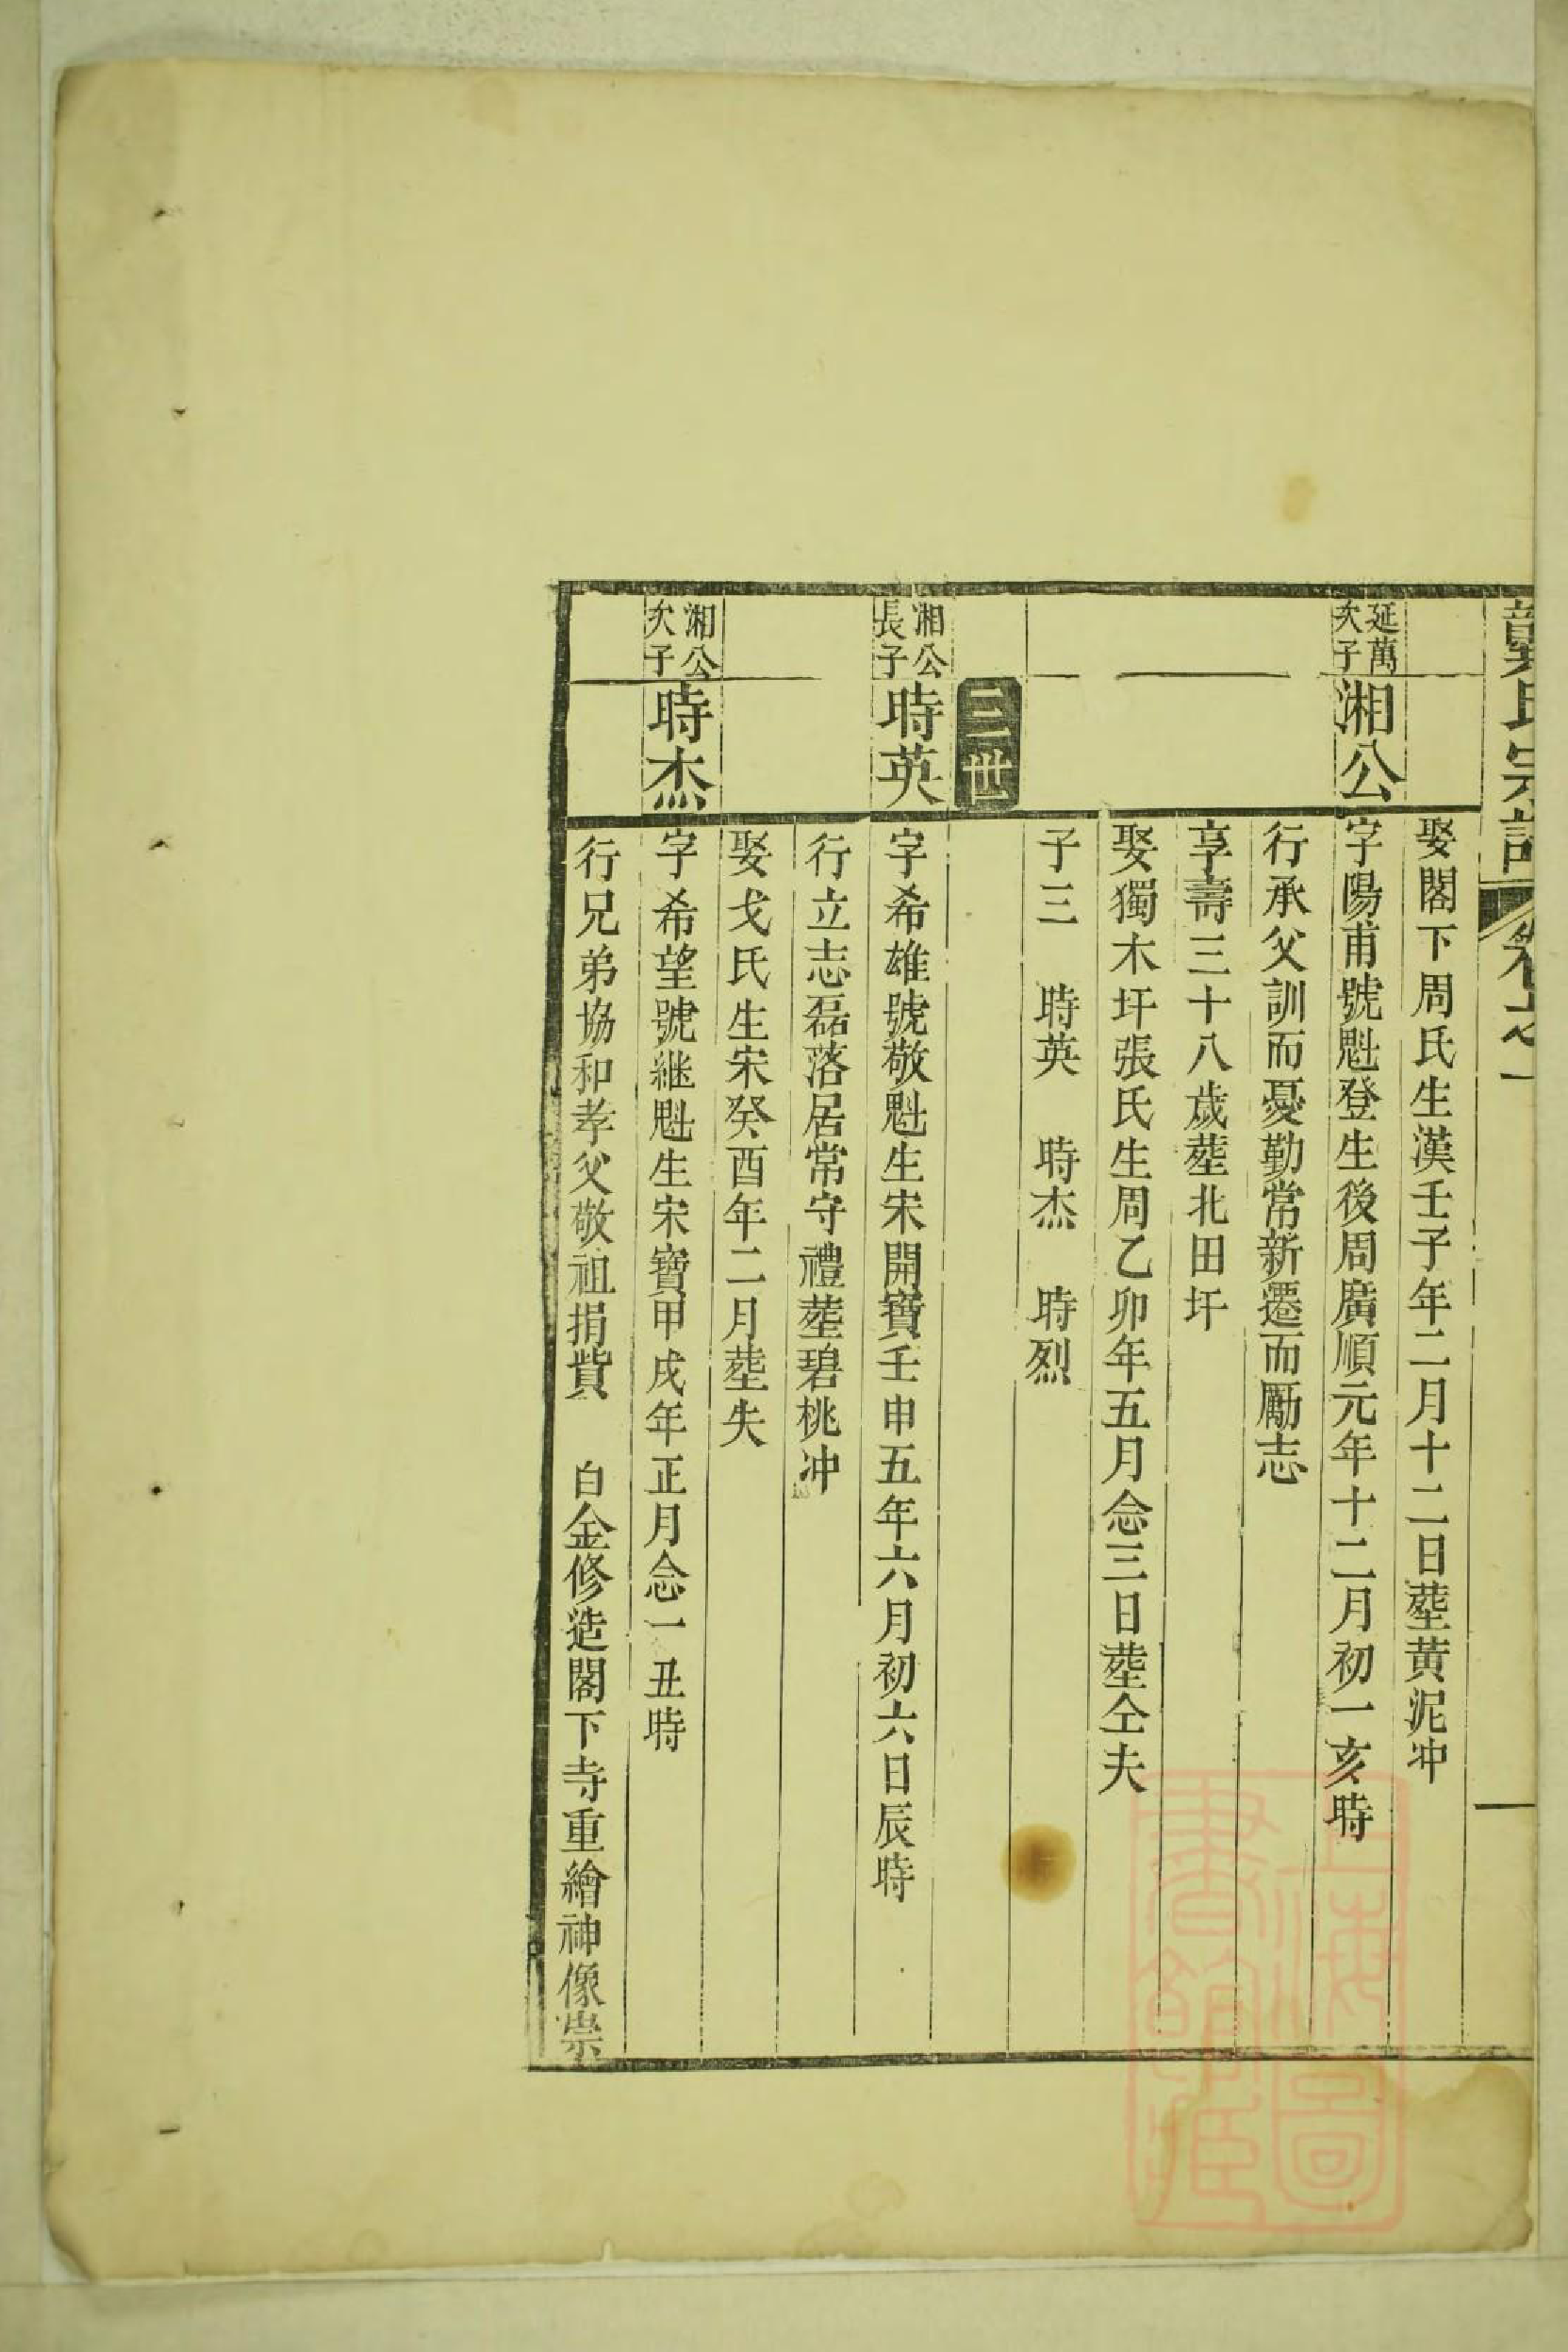 龔氏宗譜 卷之一 一
娶閣下周氏生漢壬子年二月十二日塟黄泥冲
延萬次子 湘公 字陽甫號魁登生後周廣順元年十二月初一亥時
行承父訓而憂勤常新遷而勵志
享壽三十八歲塟北田圩
娶獨木圩張氏生周乙卯年五月念三日塟仝夫
子三 時英 時杰 時烈
三世
湘公長子 時英 字希雄號敬魁生宋開寶壬申五年六月初六日辰時
行立志磊落居常守禮塟碧桃冲
娶戈氏生宋癸酉年二月塟失
湘公次子 時杰 字希望號継魁生宋寶甲戌年正月念一丑時
行兄弟協和孝父敬祖捐貲 白金修造閣下寺重繪神像崇
上海圖書館藏